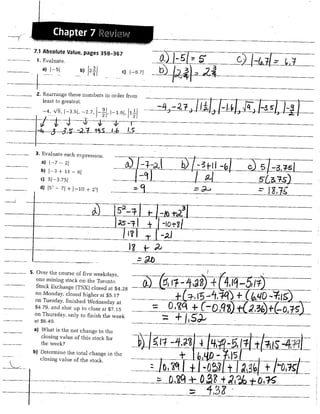 Chapter 7 Review
7.1 Absolute Value, pages 358–367
1. Evaluate.
a) |−5| b) |2 3/4| c) |−6.7|
a) |−5| = 5 c) |−6.7| = 6.7
b) |2 3/4| = 2 3/4
2. Rearrange these numbers in order from
least to greatest.
−4, √9, |−3.5|, −2.7, |−9/2|, |−1.6|, |1 1/2|
−4, −2.7, |1 1/2|, |−1.6|, √9, |−3.5|, |−9/2|
−4 3 3.5 −2.7 4.5 1.6 1.5
3. Evaluate each expression.
a) |−7 − 2|
b) |−3 + 11 − 6|
c) 5|−3.75|
d) |5² − 7| + |−10 + 2³|
a) |−7−2| b) |−3+11−6| c) 5|−3.75|
|−9| |2| 5(3.75)
= 9 = 2 = 18.75
d) |5²−7| + |−10+2³|
|25−7| + |−10+8|
|18| + |−2|
18 + 2
= 20
5. Over the course of five weekdays,
one mining stock on the Toronto
Stock Exchange (TSX) closed at $4.28
on Monday, closed higher at $5.17
on Tuesday, finished Wednesday at
$4.79, and shot up to close at $7.15
on Thursday, only to finish the week
at $6.40.
a) What is the net change in the
closing value of this stock for
the week?
b) Determine the total change in the
closing value of the stock.
a) (5.17−4.28) + (4.19−5.17)
+ (7.15−4.79) + (6.40−7.15)
= 0.89 + (−0.98) + (2.36) + (−0.75)
= +1.52
b) |5.17−4.28| + |4.79−5.17| + |7.15−4.79|
+ |6.40−7.15|
= |0.89| + |−0.38| + |2.36| + |−0.75|
= 0.89 + 0.38 + 2.36 + 0.75
= 4.38